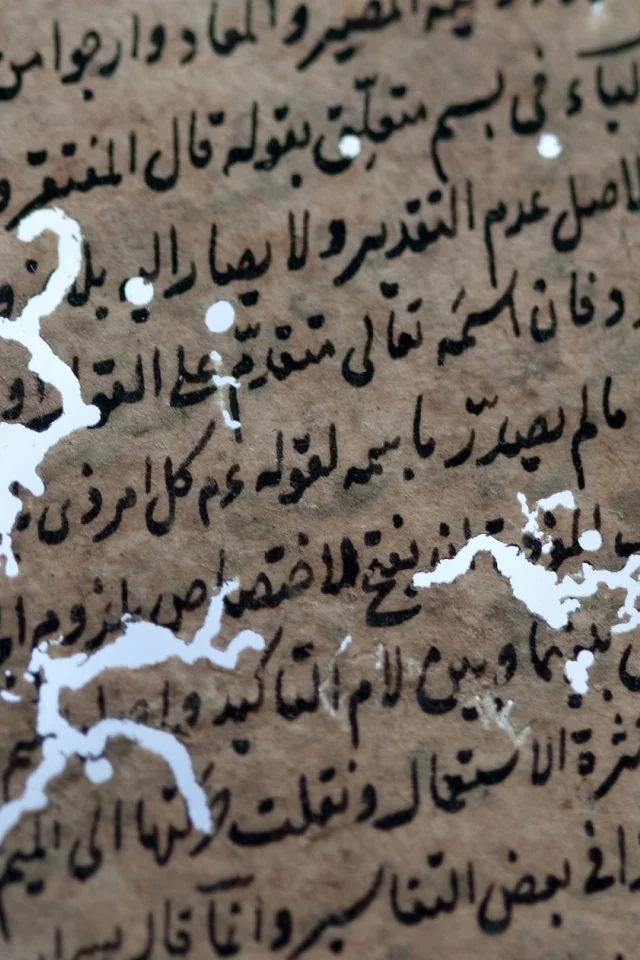 المصير والمعاد وارجوا من
الباء في بسم متعلّق بقوله قال المفتقر
الاصل عدم التقدير ولا يصار اليه بلا
فان اسمَه تعالى متقدِّم على القراءة
مالم يصدّر باسمه لقوله عم كل امر ذى
بفتح الاختصاص يلزوم
بينهما وبين لام التاكيد واصل اسم
كثرة الاستعمال ونقلت حركتها الى الميم
في بعض التفاسير وانّما قال بسم